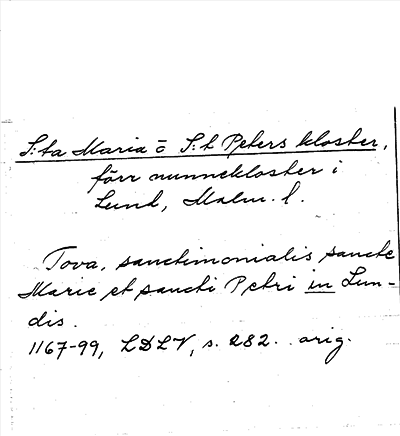 S:ta Maria o S:t Peters kloster,
förr nunnekloster i
Lund, Malm. l.
Tova, sanctimonialis sancte
Marie et sancti Petri in Lun-
dis.
1167-99, LDLV, s. 282. orig.